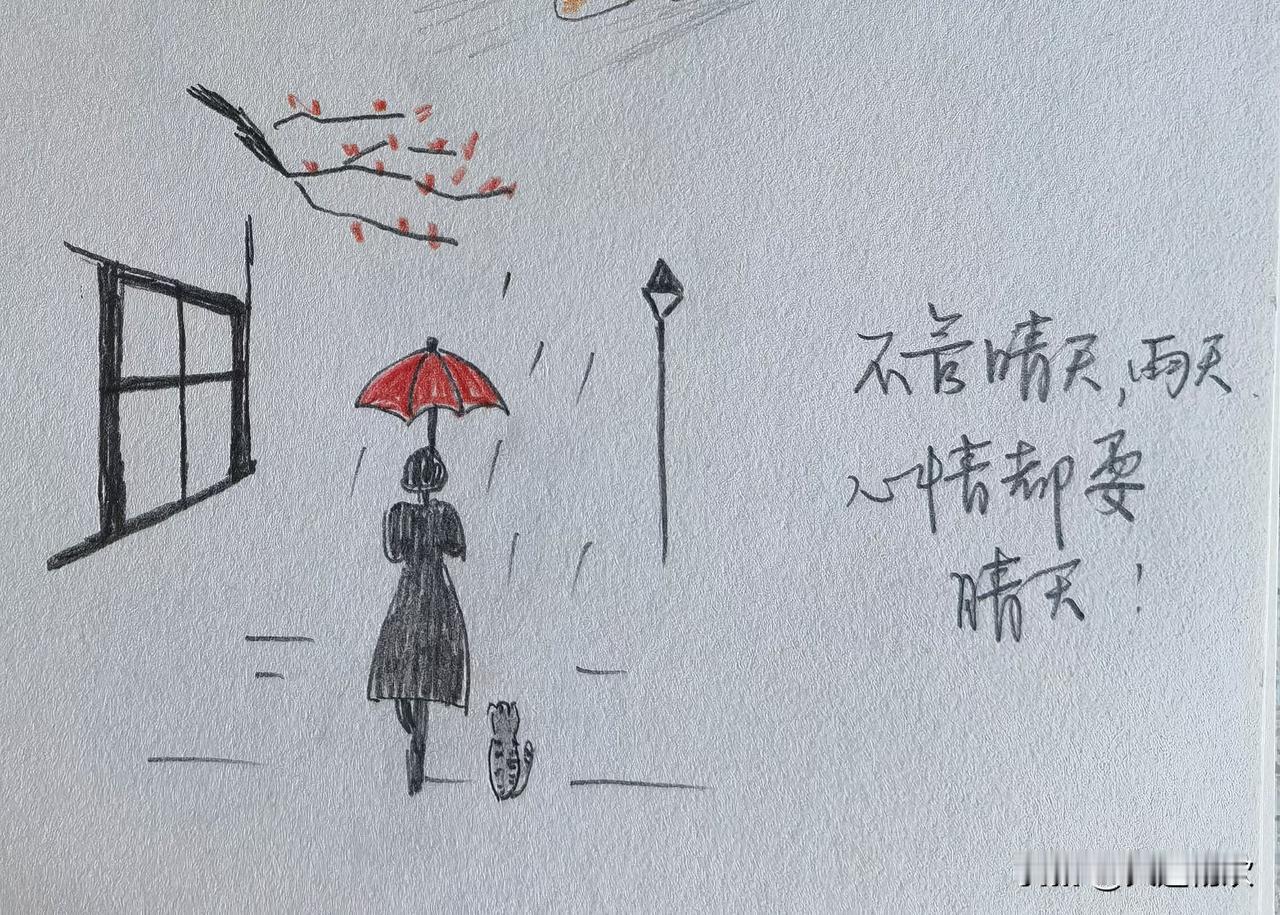 不管晴天,雨天
心情都要
晴天!